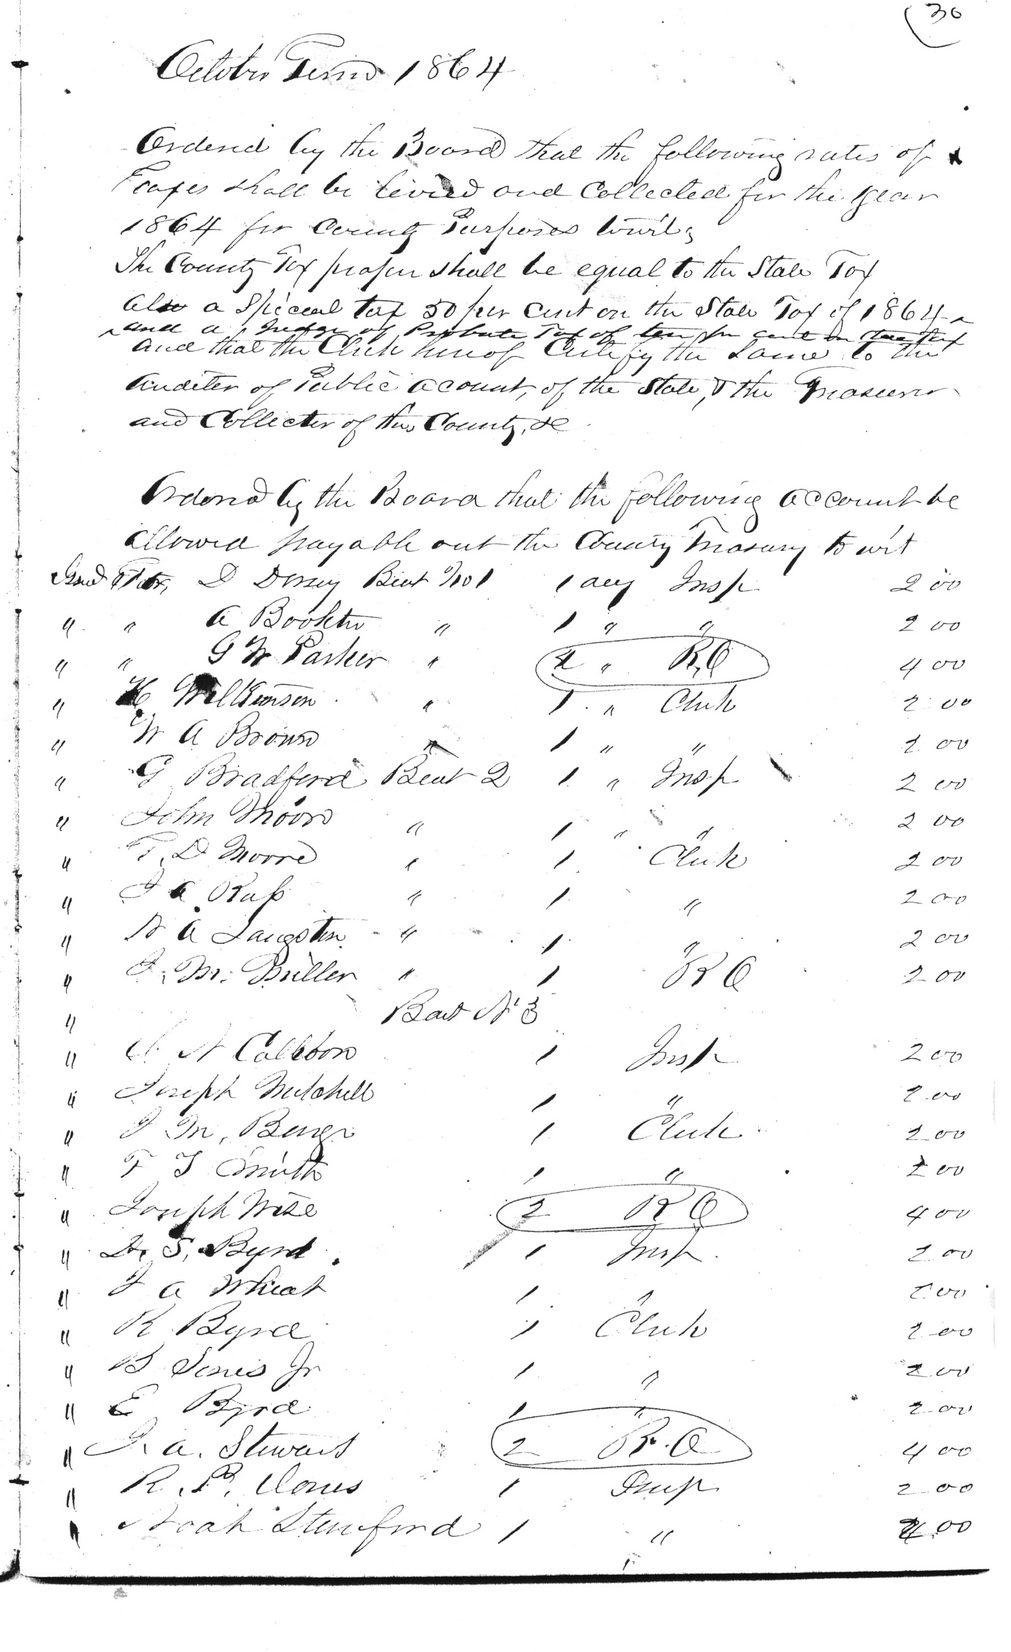 30
October Term 1864
Ordered by the Board that the following rates of
Taxes shall be levied and Collected for the year
1864 for County Purposes towit;
The County Tax proper shall be equal to the State Tax
also a Special tax 50 per cent on the State Tax of 1864
and a Judge of Probate Tax of ten per cent on
and that the Clerk hereof Certify the Same to the
Auditer of Public account, of the State, & the Treasurer
and Collecter of the County, &c
Ordered by the Board that the following account be
allowed payable out the County Treasury to wit
D Dorsey Beat No 1 1 day Insp 2 00
" " A Booker " 1 " " 2 00
" " G W Parker " 2 " R.O 4 00
" H Wilkinson " 1 " Clerk 2 00
" W A Brown " 1 " " 2 00
" G Bradford Beat 2 1 " Insp 2 00
" John Moore " 1 " " 2 00
" T. D Moore " 1 Clerk 2 00
" J A Russ " 1 " 2 00
" A Langston " 1 " 2 00
" J. M. Butler " 1 R O 2 00
" Beat No 3
" N 1 Insp 2 00
" Joseph Mitchell 1 " 2 00
" J M, 1 Clerk 2 00
" T J Smith 1 " 2 00
" Joseph Wise 2 R O 4 00
" S, Byrd 1 Insp. 2 00
" J A Wheat 1 " 2 00
" R Byrd 1 Clerk 2 00
" B Jones Jr 1 " 2 00
" E Byrd 1 " 2 00
" J. A. Stewart 2 R. O 4 00
" R. P. 1 Insp 2 00
" Noah Stanford 1 " 2 00